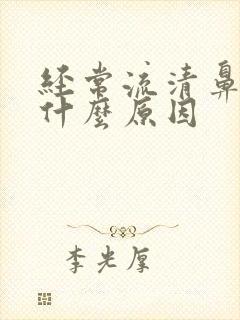 经常流清鼻
什麽原因
李光厚